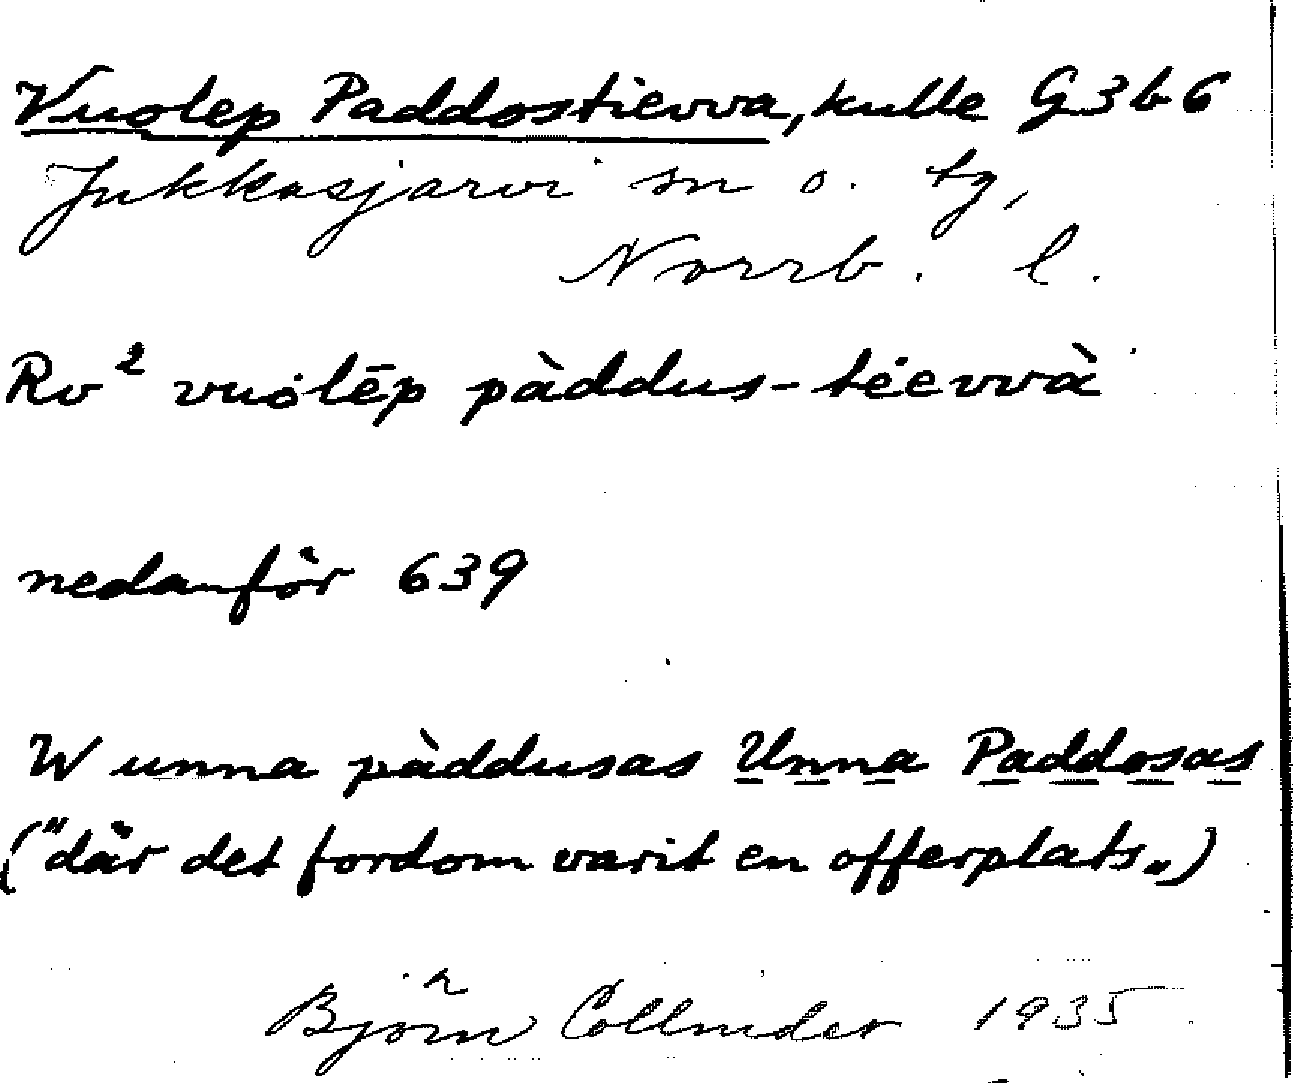 Vuolep Paddostievva, kulle G3b6
Jukkasjärvi sn o. tg,
Norrb. l.
Rv² vuolēp pàddus-tėevvà
nedanför 639
W unna pàddusas Unna Paddosas
("där det fordom varit en offerplats")
Björn Collinder 1935